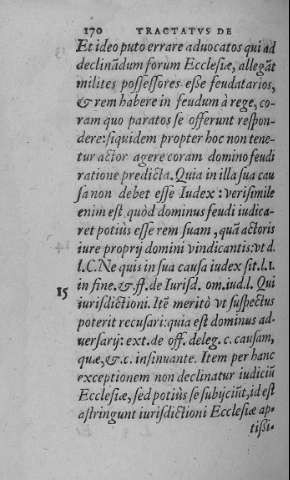 170 TRACTATVS DE
Et ideo puto errare aduocatos qui ad
declinādum forum Ecclesiæ, allegāt
milites possessores esse feudatarios,
& rem habere in feudum à rege, co-
ram quo paratos se offerunt respon-
dere: siquidem propter hoc non tene-
tur actor agere coram domino feudi
ratione predicta. Quia in illa sua cau
sa non debet esse Iudex: verisimile
enim est, quòd dominus feudi iudica-
ret potiùs esse rem suam, quā actoris
iure proprij domini vindicantis: vt d.
l. C. Ne quis in sua causa iudex sit. l. 1.
in fine. & ff. de Iurisd. om. iud. l. Qui
15 iurisdictioni. Itē meritò vt suspectus
poterit recusari: quia est dominus ad-
uersarij: ext. de off. deleg. c. causam,
quæ, & c. insinuante. Item per hanc
exceptionem non declinatur iudiciū
Ecclesiæ, sed potiùs se subijciūt, id est
astringunt iurisdictioni Ecclesiæ ap-
tißi-